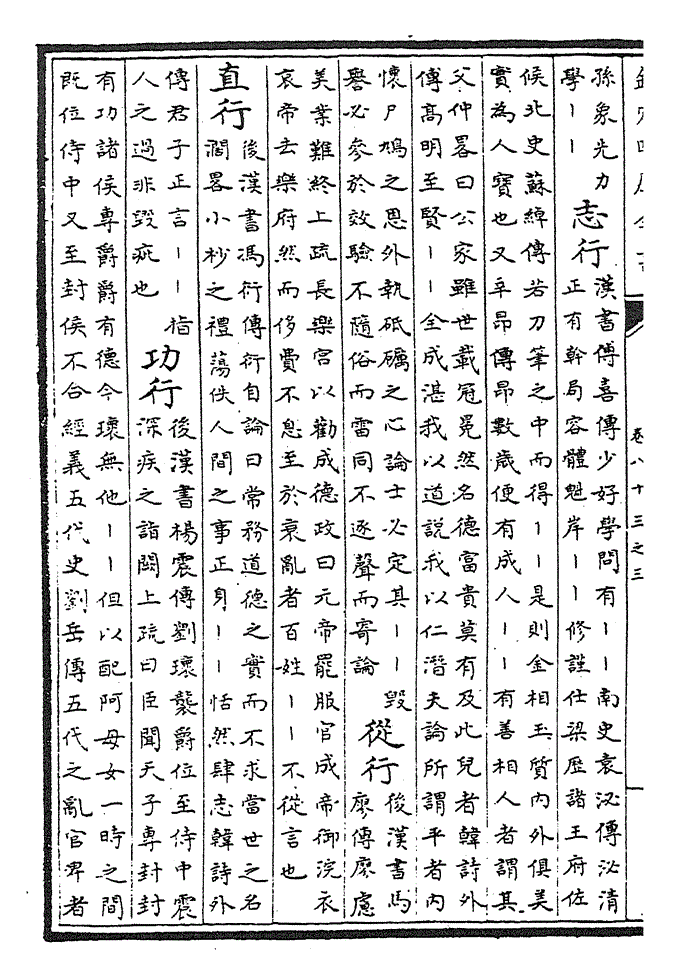 卷八十三之三
孫象先力
學丨丨
志行
漢書傅喜傳少好學問有丨丨南史袁泌傳泌清
正有幹局容體魁岸丨丨修謹仕梁歷諸王府佐
候北史蘇綽傳若刀筆之中而得丨丨是則金相玉質內外俱美
實為人寶也又辛昂傳昂數歲便有成人丨丨有善相人者謂其
父仲畧曰公家雖世載冠冕然名德富貴莫有及此兒者韓詩外
傳高明至賢丨丨全成湛我以道說我以仁潛夫論所謂平者內
懷尸鳩之恩外執砥礪之心論士必定其丨丨毀
譽必參於效驗不隨俗而雷同不逐聲而寄論
從行
後漢書馬
廖傳廖慮
美業難終上疏長樂宮以勸成德政曰元帝罷服官成帝御浣衣
哀帝去樂府然而侈費不息至於衰亂者百姓丨丨不從言也
直行
後漢書馮衍傳衍自論曰常務道德之實而不求當世之名
濶畧小杪之禮蕩佚人間之事正身丨丨恬然肆志韓詩外
傳君子正言丨丨指
人之過非毀疵也
功行
後漢書楊震傳劉瓌襲爵位至侍中震
深疾之詣闕上疏曰臣聞天子專封封
有功諸侯專爵爵有德今瓌無他丨丨但以配阿母女一時之間
既位侍中又至封侯不合經義五代史劉岳傳五代之亂官卑者